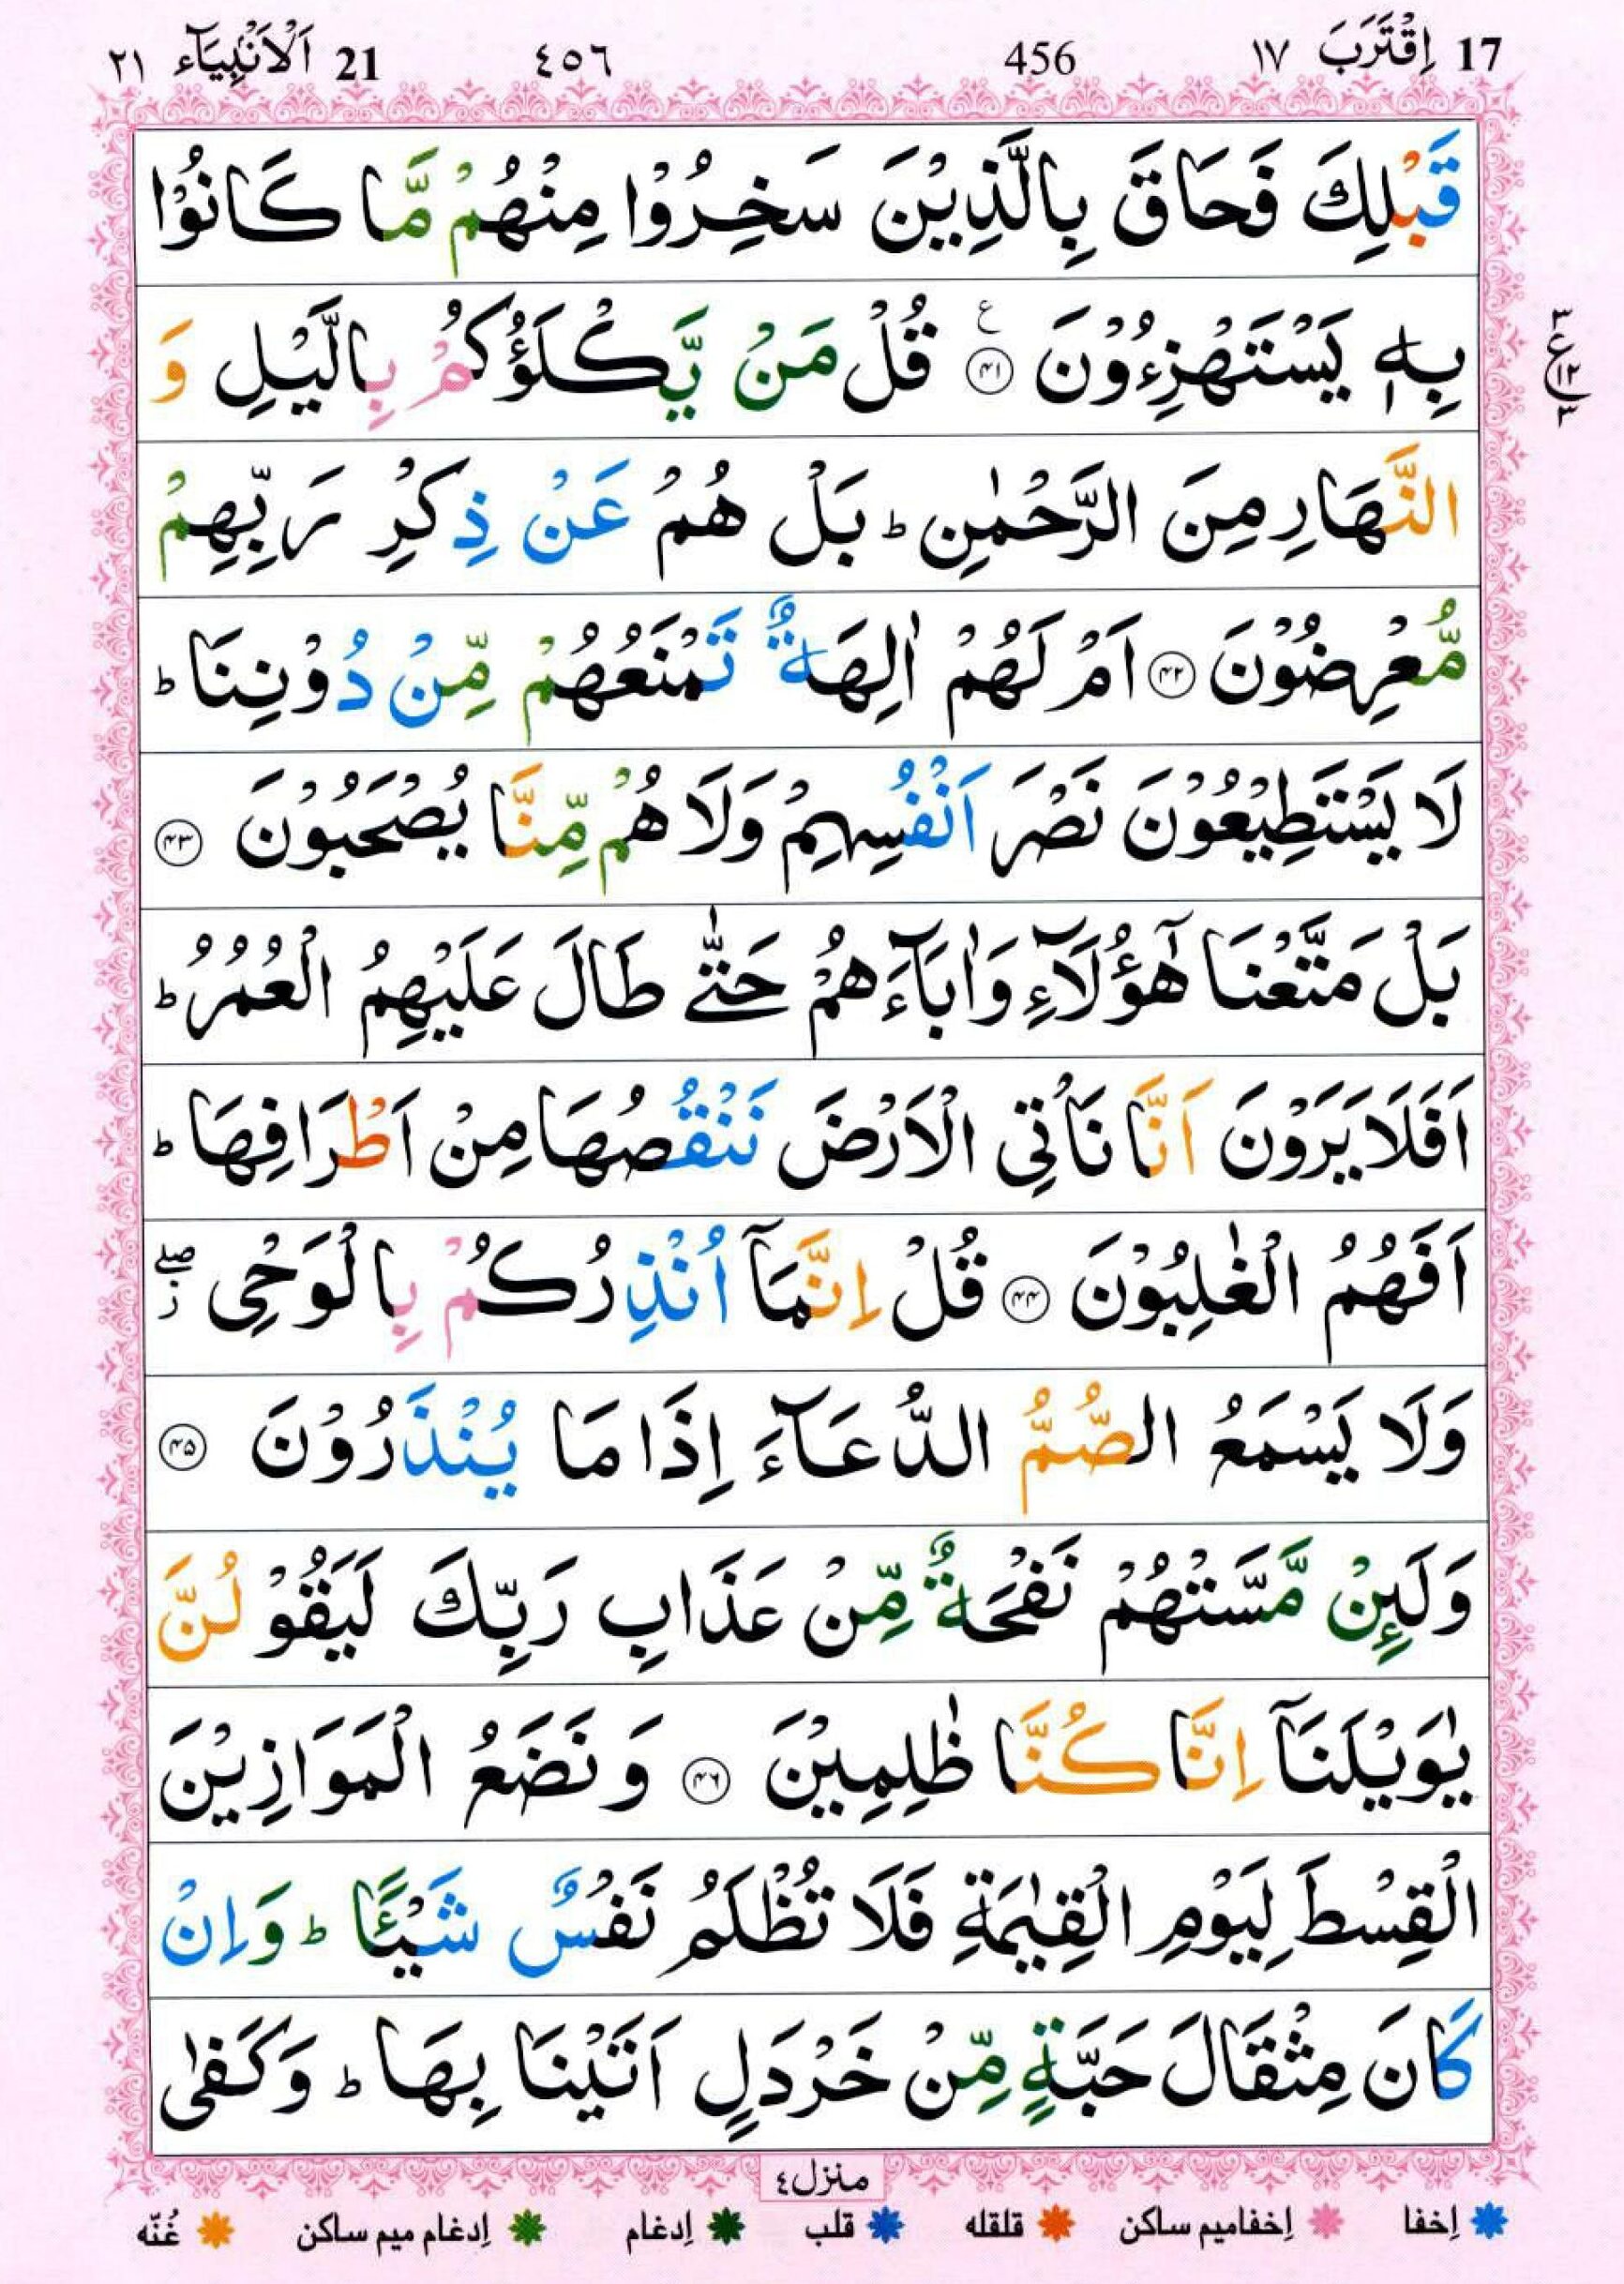 17 اِقْتَرَبَ ١٧ 456 ٤٥٦ 21 اَلْاَنْۢبِيَآء ٢١
قَبْلِكَ فَحَاقَ بِالَّذِيْنَ سَخِرُوْا مِنْهُمْ مَّا كَانُوْا
بِهٖ يَسْتَهْزِءُوْنَ ۴۱ ع قُلْ مَنْ يَّكْلَؤُكُمْ بِالَّيْلِ وَ
النَّهَارِ مِنَ الرَّحْمٰنِ ؕ بَلْ هُمْ عَنْ ذِكْرِ رَبِّهِمْ
مُّعْرِضُوْنَ ۴۲ اَمْ لَهُمْ اٰلِهَةٌ تَمْنَعُهُمْ مِّنْ دُوْنِنَا ؕ
لَا يَسْتَطِيْعُوْنَ نَصْرَ اَنْفُسِهِمْ وَلَا هُمْ مِّنَّا يُصْحَبُوْنَ ۴۳
بَلْ مَتَّعْنَا هٰٓؤُلَآءِ وَاٰبَآءَهُمْ حَتّٰى طَالَ عَلَيْهِمُ الْعُمُرُ ؕ
اَفَلَا يَرَوْنَ اَنَّا نَاْتِى الْاَرْضَ نَنْقُصُهَا مِنْ اَطْرَافِهَا ؕ
اَفَهُمُ الْغٰلِبُوْنَ ۴۴ قُلْ اِنَّمَآ اُنْذِرُكُمْ بِالْوَحْىِ ز صلے
وَلَا يَسْمَعُ الصُّمُّ الدُّعَآءَ اِذَا مَا يُنْذَرُوْنَ ۴۵
وَلَئِنْ مَّسَّتْهُمْ نَفْحَةٌ مِّنْ عَذَابِ رَبِّكَ لَيَقُوْلُنَّ
يٰوَيْلَنَآ اِنَّا كُنَّا ظٰلِمِيْنَ ۴۶ وَنَضَعُ الْمَوَازِيْنَ
الْقِسْطَ لِيَوْمِ الْقِيٰمَةِ فَلَا تُظْلَمُ نَفْسٌ شَيْـًٔا ؕ وَاِنْ
كَانَ مِثْقَالَ حَبَّةٍ مِّنْ خَرْدَلٍ اَتَيْنَا بِهَا ؕ وَكَفٰى
ع ۳ ۱۲ ۳
منزل ٤
اِخفا اِخفامیم ساکن قلقله قلب اِدغام اِدغام میم ساکن غُنّه